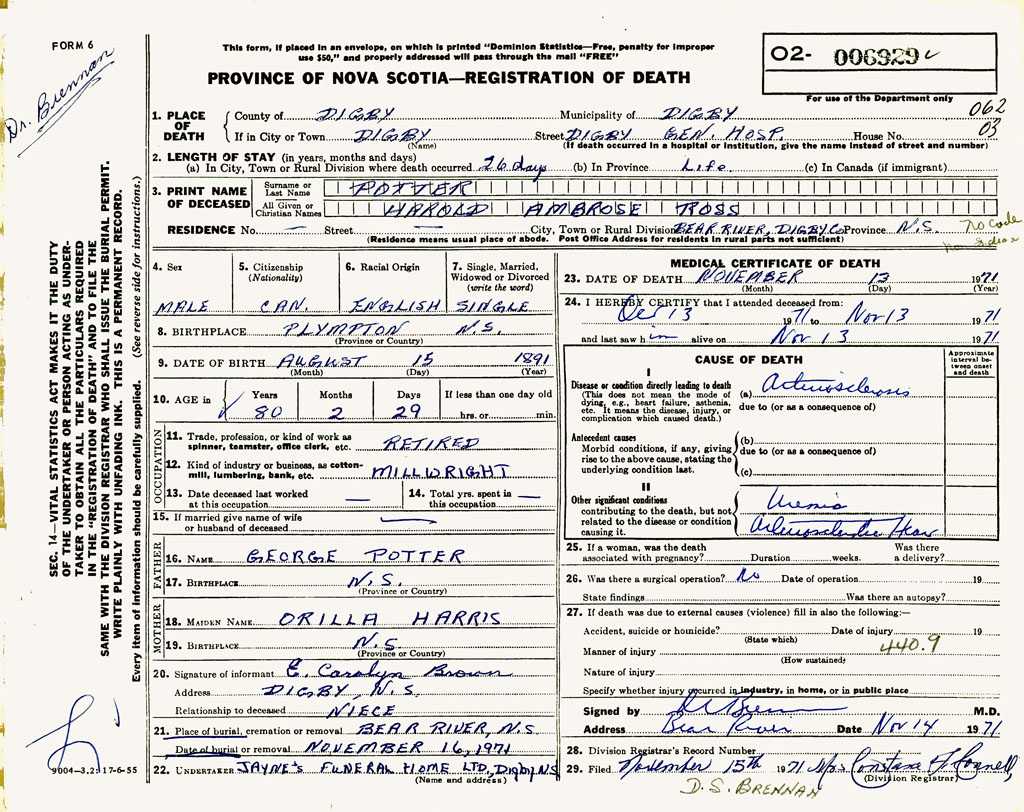 FORM 6
Dr. Brennan
This form, if placed in an envelope, on which is printed "Dominion Statistics—Free, penalty for improper
use $50," and properly addressed will pass through the mail "FREE"
PROVINCE OF NOVA SCOTIA—REGISTRATION OF DEATH
02- 006929
For use of the Department only
062
03
1. PLACE OF DEATH
County of DIGBY Municipality of DIGBY
If in City or Town DIGBY Street DIGBY GEN. HOSP. House No.
(Name) (If death occurred in a hospital or institution, give the name instead of street and number)
2. LENGTH OF STAY (in years, months and days)
(a) In City, Town or Rural Division where death occurred 26 days (b) In Province Life (c) In Canada (if immigrant)
3. PRINT NAME OF DECEASED
Surname or Last Name POTTER
All Given or Christian Names HAROLD AMBROSE ROSS
RESIDENCE No. — Street — City, Town or Rural Division BEAR RIVER, DIGBY Co Province N.S.
No Code
(Residence means usual place of abode. Post Office Address for residents in rural parts not sufficient)
SEC. 14—VITAL STATISTICS ACT MAKES IT THE DUTY
OF THE UNDERTAKER OR PERSON ACTING AS UNDER-
TAKER TO OBTAIN ALL THE PARTICULARS REQUIRED
IN THE "REGISTRATION OF DEATH" AND TO FILE THE
SAME WITH THE DIVISION REGISTRAR WHO SHALL ISSUE THE BURIAL PERMIT.
WRITE PLAINLY WITH UNFADING INK. THIS IS A PERMANENT RECORD.
Every item of information should be carefully supplied. (See reverse side for instructions.)
4. Sex MALE
5. Citizenship (Nationality) CAN.
6. Racial Origin ENGLISH
7. Single, Married, Widowed or Divorced (write the word) SINGLE
8. BIRTHPLACE PLYMPTON N.S.
(Province or Country)
9. DATE OF BIRTH AUGUST 15 1891
(Month) (Day) (Year)
10. AGE in Years Months Days If less than one day old
80 2 29 hrs. or min.
OCCUPATION
11. Trade, profession, or kind of work as
spinner, teamster, office clerk, etc. RETIRED
12. Kind of industry or business, as cotton-
mill, lumbering, bank, etc. MILLWRIGHT
13. Date deceased last worked at this occupation —
14. Total yrs. spent in this occupation —
15. If married give name of wife
or husband of deceased —
FATHER
16. NAME GEORGE POTTER
17. BIRTHPLACE N.S.
(Province or Country)
MOTHER
18. MAIDEN NAME ORILLA HARRIS
19. BIRTHPLACE N.S
(Province or Country)
20. Signature of informant E. Carolyn Brown
Address DIGBY, N.S.
Relationship to deceased NIECE
21. Place of burial, cremation or removal BEAR RIVER, N.S.
Date of burial or removal NOVEMBER 16, 1971
22. UNDERTAKER JAYNE'S FUNERAL HOME LTD, Digby NS
(Name and address)
9004—3.2: 17-6-55
MEDICAL CERTIFICATE OF DEATH
23. DATE OF DEATH NOVEMBER 13 1971
(Month) (Day) (Year)
24. I HEREBY CERTIFY that I attended deceased from:
Oct 13 1971 to Nov 13 1971
and last saw him alive on Nov 13 1971
CAUSE OF DEATH
Approximate interval between onset and death
I
Disease or condition directly leading to death
(This does not mean the mode of
dying, e.g., heart failure, asthenia,
etc. It means the disease, injury, or
complication which caused death.)
(a) Arteriosclerosis
due to (or as a consequence of)
Antecedent causes
Morbid conditions, if any, giving
rise to the above cause, stating the
underlying condition last.
(b)
due to (or as a consequence of)
(c)
II
Other significant conditions
contributing to the death, but not
related to the disease or condition
causing it.
Uremia
Arteriosclerotic Heart
25. If a woman, was the death Was there
associated with pregnancy? Duration weeks. a delivery?
26. Was there a surgical operation? No Date of operation 19
State findings Was there an autopsy?
27. If death was due to external causes (violence) fill in also the following:—
Accident, suicide or homicide? Date of injury 19
(State which)
Manner of injury 440.9
(How sustained)
Nature of injury
Specify whether injury occurred in industry, in home, or in public place
Signed by M.D.
Address Bear River Date Nov 14 1971
28. Division Registrar's Record Number
29. Filed November 15th 1971 Mrs Constance
(Division Registrar)
D. S. BRENNAN